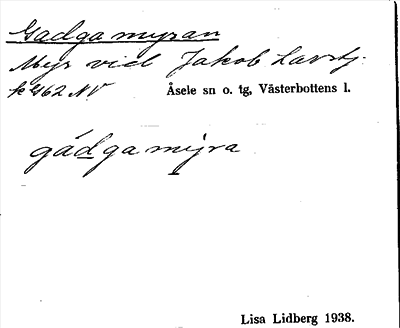 Gadgamyran
Myr vid Jakob Larstj.
k 462 NV Åsele sn o. tg, Västerbottens l.
gádgamýra
Lisa Lidberg 1938.